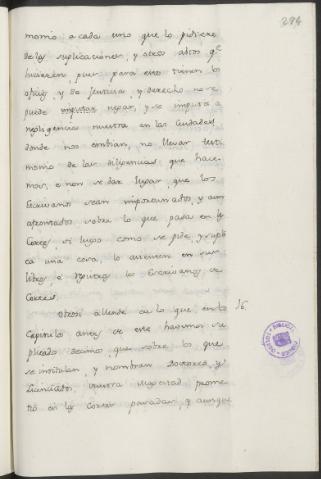 284
monio a cada uno que lo pidiere
de las suplicaciones, y otros abtos q^e
hicieren, pues para esto tienen los
oficios, y de Justicia, y derecho no se
puede negar, y se imputa a
negligencia nuestra en las Ciudades
donde nos embian, no llevar testi
monio de las diligencias que hace-
mos, e non se dar lugar, que los
Escribanos sean importunados, y aun
afrontados sobre lo que pasa en
Cortes, si luego como se pide, y supli
ca una cosa, lo asienten en sus
libros, e los Escribanos de
Cortes.
Otrosi allende de lo que en los 56.
Capitulos antes de este havemos su
plicado decimos, que sobre lo que
se intitulan, y nombran Doctores, y
Licenciados, vuestra Magestad prome
tió en las Cortes pasadas, y aunque